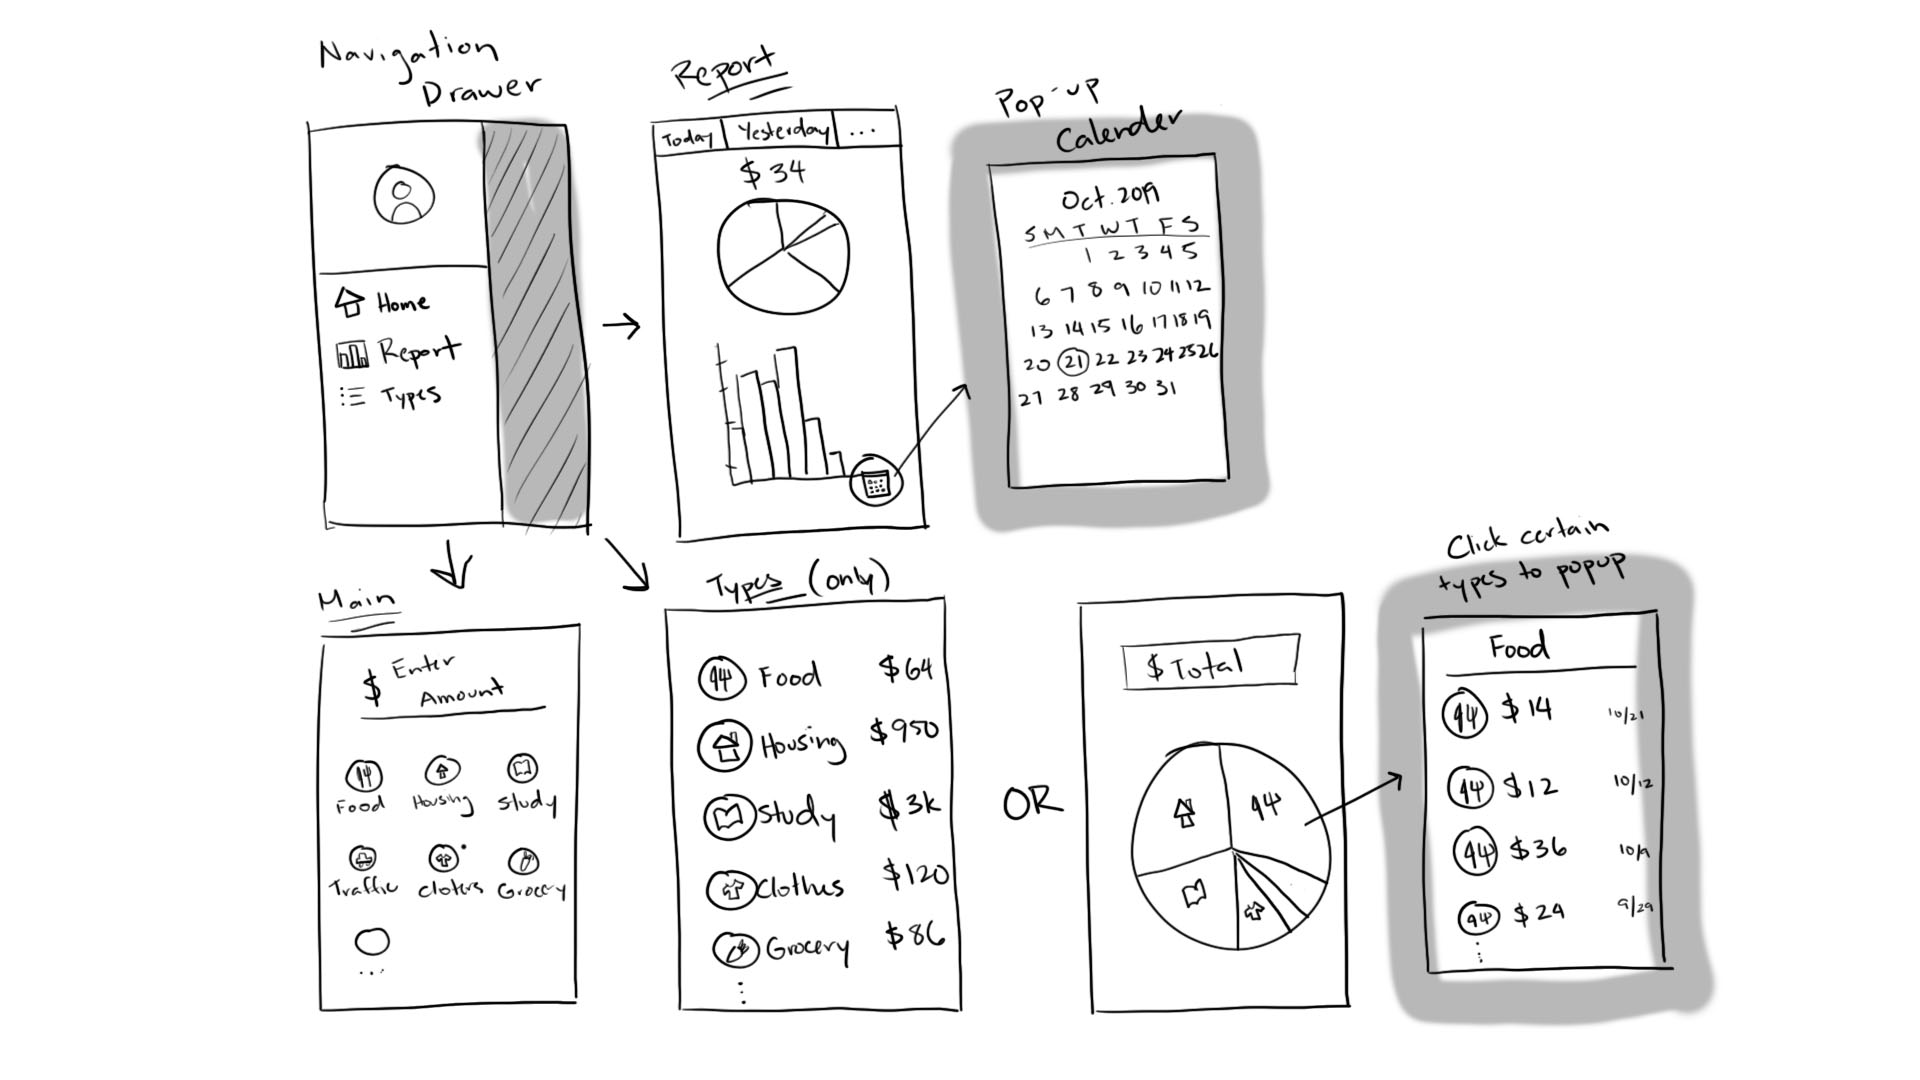 Navigation
Drawer
Home
Report
Types
Report
Today Yesterday ...
$ 34
Pop-up
Calender
Oct. 2019
S M T W T F S
1 2 3 4 5
6 7 8 9 10 11 12
13 14 15 16 17 18 19
20 21 22 23 24 25 26
27 28 29 30 31
Main
$ Enter
Amount
Food Housing Study
Traffic Cloters Grocery
...
Types (only)
Food $64
Housing $950
Study $3k
Clothes $120
Grocery $86
OR
$ Total
Click certain
types to popup
Food
$ 14 10/21
$ 12 10/12
$ 36 10/9
$ 24 9/29